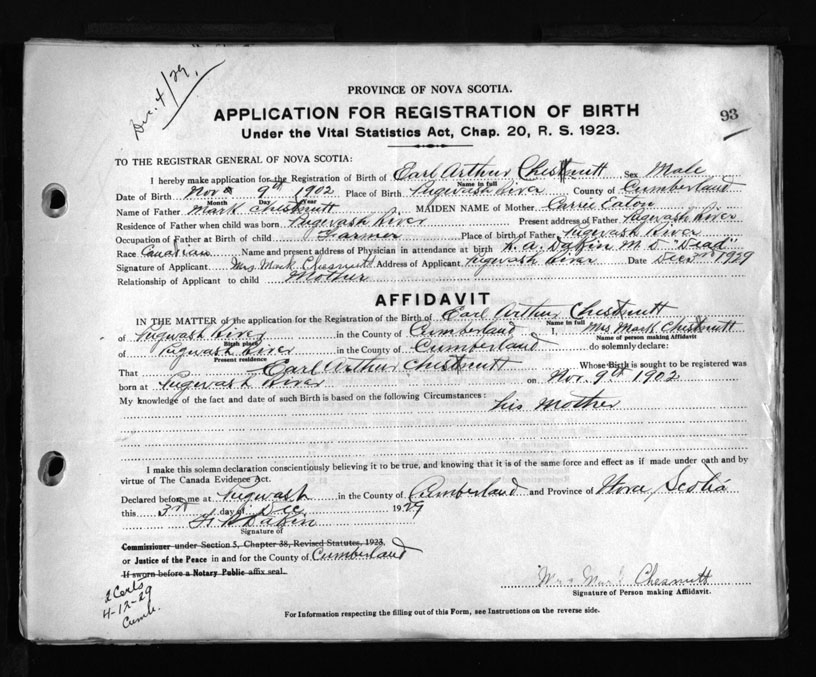 Dec. 4/29.
PROVINCE OF NOVA SCOTIA.
APPLICATION FOR REGISTRATION OF BIRTH
93
Under the Vital Statistics Act, Chap. 20, R. S. 1923.
TO THE REGISTRAR GENERAL OF NOVA SCOTIA:
I hereby make application for the Registration of Birth of Earl Arthur Chestnutt Sex Male
Name in full
Date of Birth Nov 9th 1902 Place of Birth Pugwash River County of Cumberland
Month Day Year
Name of Father Mark Chestnutt MAIDEN NAME of Mother Carrie Eaton
Residence of Father when child was born Pugwash River Present address of Father Pugwash River
Occupation of Father at Birth of child Farmer Place of birth of Father Pugwash River
Race Canadian Name and present address of Physician in attendance at birth H. A. Dakin M. D "Dead"
Signature of Applicant Mrs. Mark Chesnutt Address of Applicant Pugwash River Date Dec 3rd 1929
Relationship of Applicant to child Mother
AFFIDAVIT
IN THE MATTER of the application for the Registration of the Birth of Earl Arthur Chestnutt
Name in full
of Pugwash River in the County of Cumberland I, Mrs Mark Chestnutt
Birth place Name of person making Affidavit
of Pugwash River in the County of Cumberland do solemnly declare:
Present residence
That Earl Arthur Chestnutt Whose Birth is sought to be registered was
born at Pugwash River on Nov 9th 1902
My knowledge of the fact and date of such Birth is based on the following Circumstances:
his Mother
I make this solemn declaration conscientiously believing it to be true, and knowing that it is of the same force and effect as if made under oath and by
virtue of The Canada Evidence Act.
Declared before me at Pugwash in the County of Cumberland and Province of Nova Scotia
this 3rd day of Dec 1929
Dakin
Signature of
Commissioner under Section 5, Chapter 38, Revised Statutes, 1923,
or Justice of the Peace in and for the County of Cumberland
If sworn before a Notary Public affix seal.
2 Certs
4-12-29
Cumb.
Mrs Mark Chesnutt
Signature of Person making Affidavit.
For Information respecting the filling out of this Form, see Instructions on the reverse side.